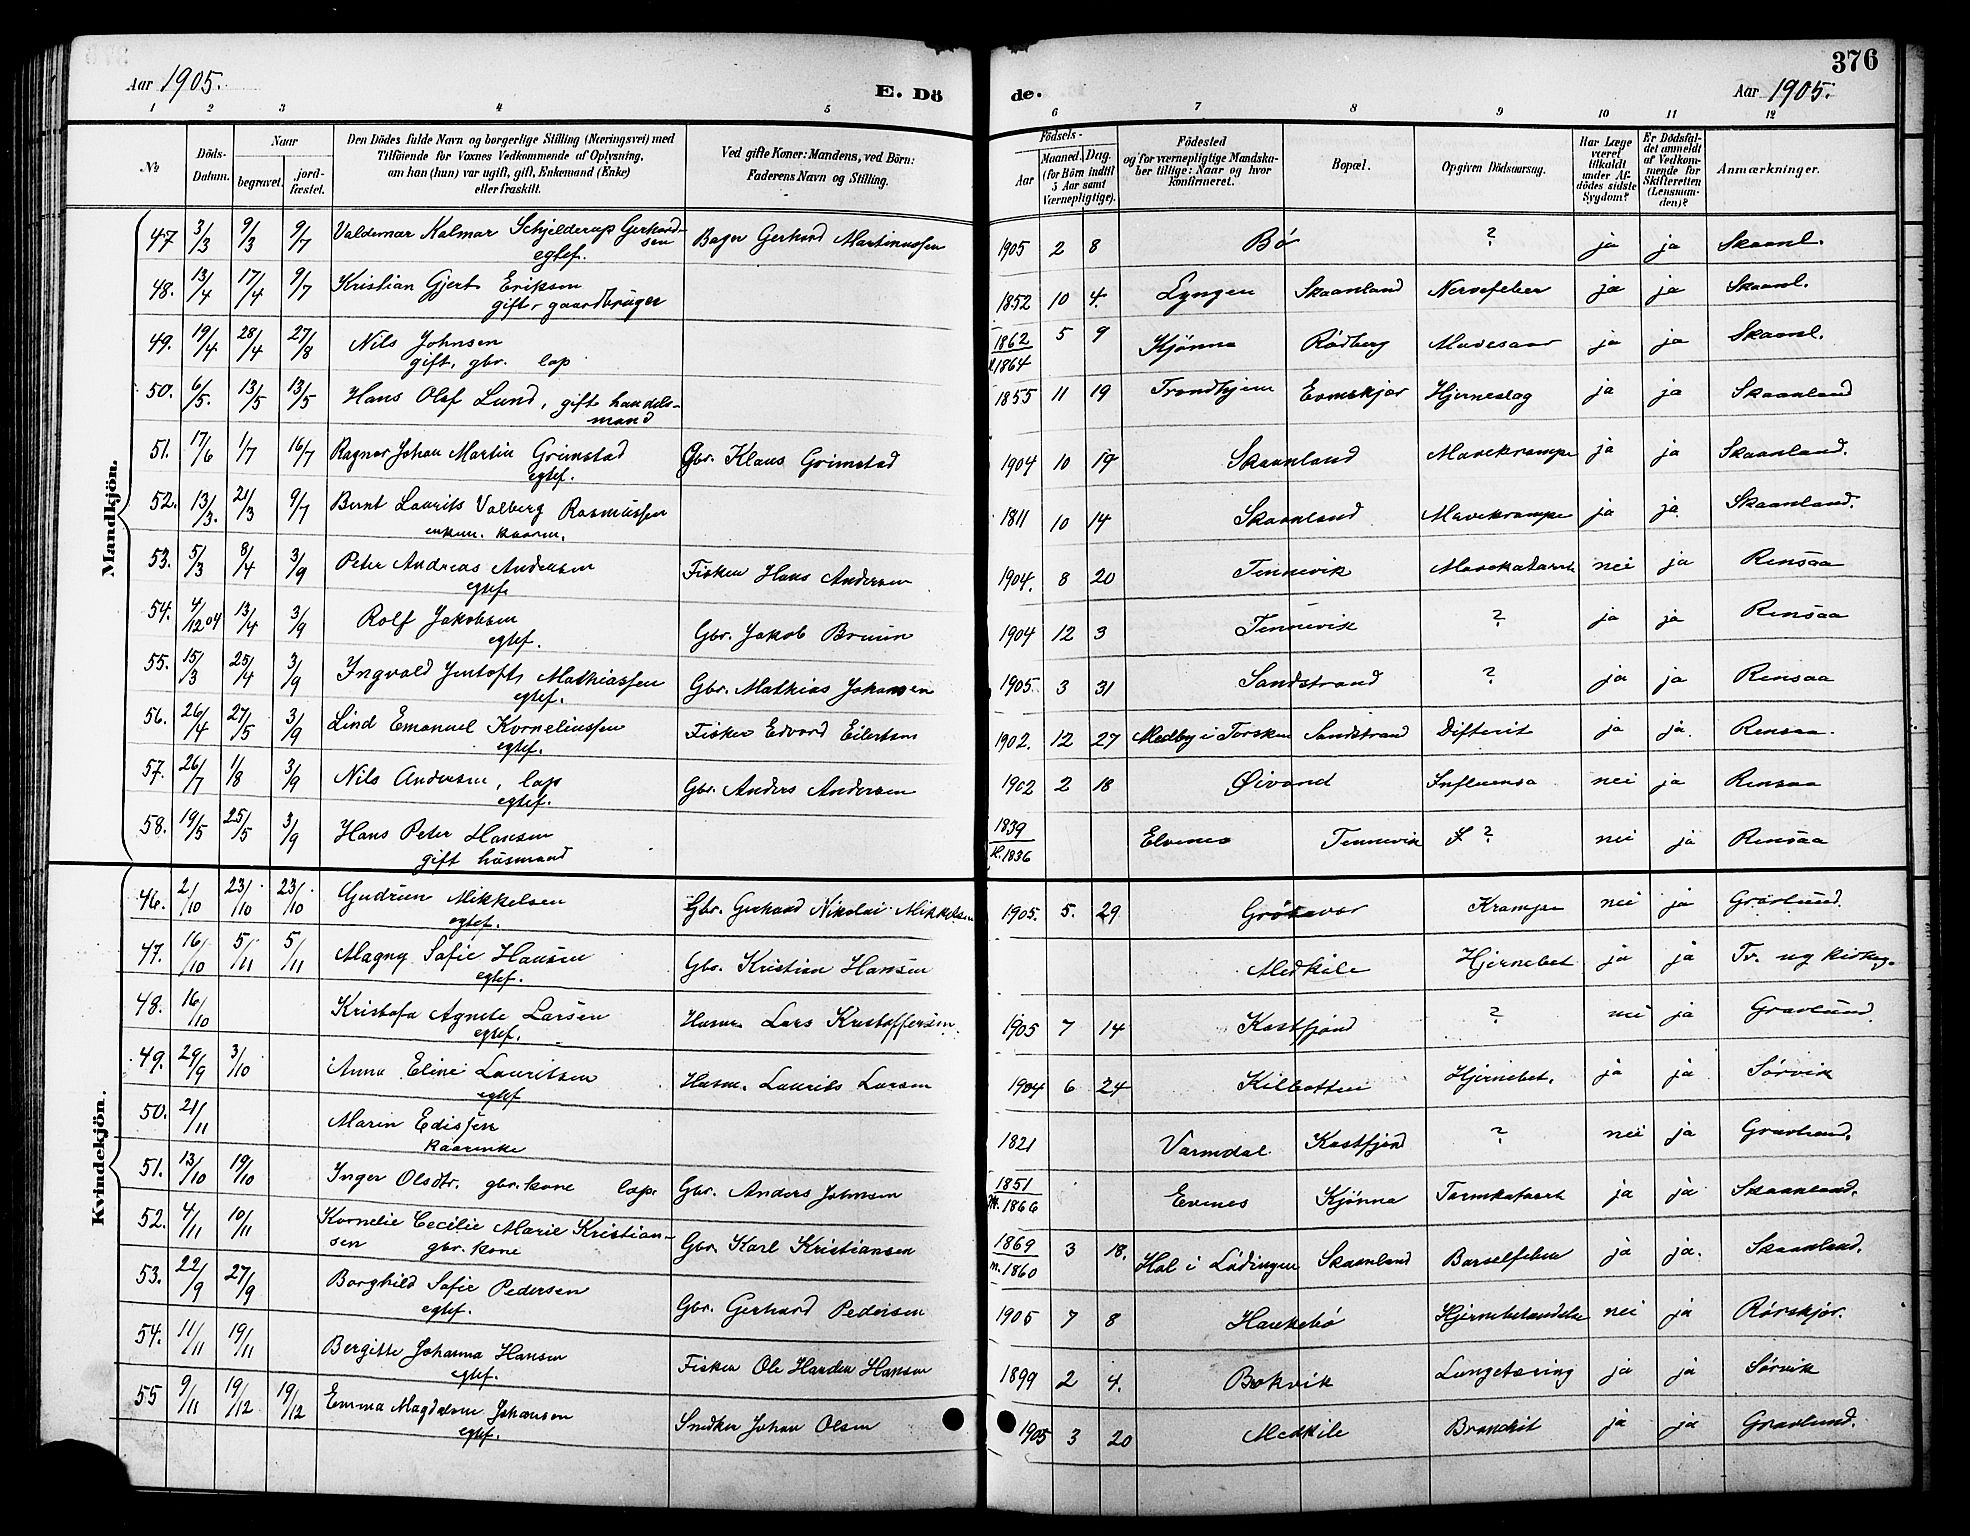 376
Aar 1905.
E. Dö
de.
Aar 1905.
1 2 3 4 5 6 7 8 9 10 11 12
No
Döds-Datum.
Naar
begravet.
jord-fæstet.
Den Dödes fulde Navn og borgerlige Stilling (Næringsvei) med
Tilföiende for Voxnes Vedkommende af Oplysning,
om han (hun) var ugift, gift, Enkemand (Enke)
eller fraskilt.
Ved gifte Koner: Mandens, ved Börn:
Faderens Navn og Stilling.
Födsels-
Aar
Maaned. Dag.
(for Börn indtil
5 Aar samt
Værnepligtige).
Födested
og for værnepligtige Mandska-
ber tillige: Naar og hvor
konfirmeret.
Bopæl.
Opgiven Dödsaarsag.
Har Læge
været
tilkaldt
under Af-
dödes sidste
Sygdom?
Er Dödsfal-
det anmeldt
af Vedkom-
mende for
Skifteretten
(Lensman-
den)?
Anmærkninger.
Mandkjön.
47 3/3 9/3 9/7 Valdemar Kalmar Schjelderup Gerhard-
sen
egtef. Gerhard Martinussen 1905 2 8 Bø ? ja ja Skaanl.
48. 13/4 17/4 9/7 Kristian Gjert Eriksen
gift, gaardbruger 1852 10 4. Lyngen Skaanland Nervefeber ja ja Skaanl.
49. 19/4 28/4 27/8 Nils Johnsen
gift, gbr. lap 1862 1864 5 9 Kjønna Rødberg Mavesaar ja ja Skaanl.
50. 6/5. 13/5 13/5 Hans Olaf Lund, gift handels-
mand 1855 11 19 Trondhjem Evenskjær Hjerneslag ja ja Skaanland
51. 17/6 1/7 16/7 Ragnar Johan Martin Grimstad
egtef. Gbr. Klaus Grimstad 1904 10 19 Skaanland Mavekrampe ja ja Skaanland.
52. 13/3. 21/3 9/7 Bernt Laurits Valberg Rasmussen
enkem. kaarm. 1811 10 14 Skaanland Mavekrampe ja ja Skaanland.
53. 5/3 8/4 3/9 Peter Andreas Andersen
egtef. Fisker Hans Andersen 1904. 8 20 Tennevik Mavekatarrh nei ja Rensaa
54. 4/12 04 13/4 3/9 Rolf Jakobsen
egtef. Gbr. Jakob Bruun 1904 12 3 Tennevik ? ja ja Rensaa
55. 15/3 25/4 3/9 Ingvald Jentoft Mathiassen
egtef. Gbr. Mathias Johansen 1905. 3 31 Sandstrand ? ja ja Rensaa
56. 26/4 27/5 3/9 Lind Emanuel Korneliussen
egtef. Fisker Edvard Eilertsen 1902. 12 27 Medby i Torsken Sandstrand Difterit ja ja. Rensaa.
57. 26/7 1/8 3/9 Nils Andersen, lap
egtef. Gbr. Anders Andersen 1902 2 18 Øivand Influensa nei ja Rensaa
58. 19/5 25/5 3/9 Hans Peter Hansen
gift husmand 1839 1836 Elvenes Tennevik ? nei ja Rensaa
Kvindekjön.
46. 2/10 23/10 23/10 Gudrun Mikkelsen
egtef. Gbr. Gerhard Nikolai Mikkelsen 1905. 5. 29 Grøtavær Krampe nei ja Gravlund.
47. 16/10 5/11 5/11 Magny Sofie Hansen
egtef. Gbr. Kristian Hansen Medkile Hjernebet ja ja
48. 16/10 Kristofa Agnete Larsen
egtef. Husm. Lars Kristoffersen. 1905 7 14 Kastfjord ? nei ja Gravlund.
49. 29/9 3/10 Anna Eline Lauritsen
egtef Husm. Laurits Larsen 1904 6 24 Kilbotten Hjernebet. ja ja Sørvik
50. 21/11 Maren Edissen
kaarenke 1821 Varmdal Kastfjord ? nei ja Gravlund.
51. 13/10 19/10 Inger Olsdtr. gbr. kone lap. Gbr. Anders Johnsen 1851 1866 Evenes Kjønna Tarmkatarrh ja ja Skaanland.
52. 4/11 10/11 Kornelie Cecilie Marie Kristian-
sen gbr. kone Gbr. Karl Kristiansen 1869 m. 1860 3 18. Hol i Lødingen Skaanland Barselfeber ja ja. Skaanland.
53. 22/9 27/9 Borghild Sofie Pedersen
egtef. Gbr. Gerhard Pedersen 1905 7 8 Haukebø Hjernebetændelse nei ja Rørskjær.
54. 11/11 19/11 Bergitte Johanna Hansen
egtef. Fisker Ole Hansen 1899 2 4. Bokvik Lungetæring ja ja Sørvik
55 9/11 19/12 19/12 Emma Magdalene Johansen
egtef. Snedker Johan Olsen 1905 3 20 Medkile Bronchit ja ja Gravlund.